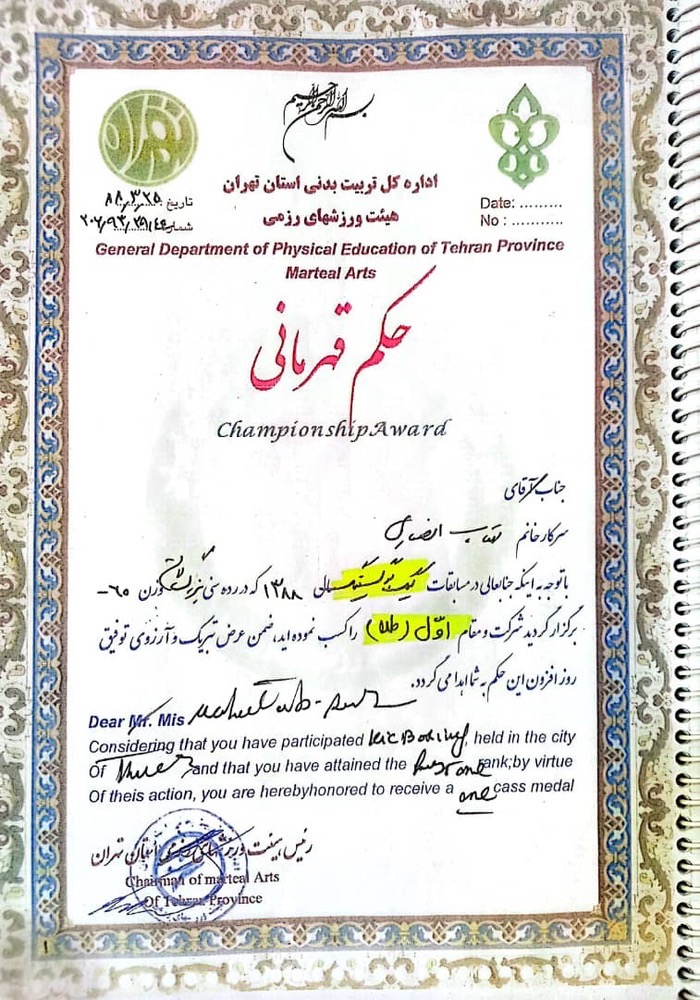 بسم الله الرحمن الرحیم
تهران
اداره کل تربیت بدنی استان تهران
هیئت ورزشهای رزمی
تاریخ ۸۸,۳,۲۵
شماره
Date: .........
No : ...........
General Department of Physical Education of Tehran Province
Marteal Arts
حکم قهرمانی
Championship Award
جناب آقای
سرکار خانم
با توجه به اینکه جنابعالی در مسابقات کیک بوکسینگ سال ۱۳۸۸ که در رده سنی بزرگسالان وزن ۶۰-
برگزار گردید شرکت و مقام اول (طلا) را کسب نموده اید، ضمن عرض تبریک و آرزوی توفیق
روز افزون این حکم به شما اهدا می گردد.
Dear Mr. Mis
Considering that you have participated kic Boxing, held in the city
Of and that you have attained the one rank;by virtue
Of theis action, you are herebyhonored to receive a one cass medal
رئیس هیئت ورزشهای رزمی استان تهران
Chairman of marteal Arts
Of Tehran Province
۱